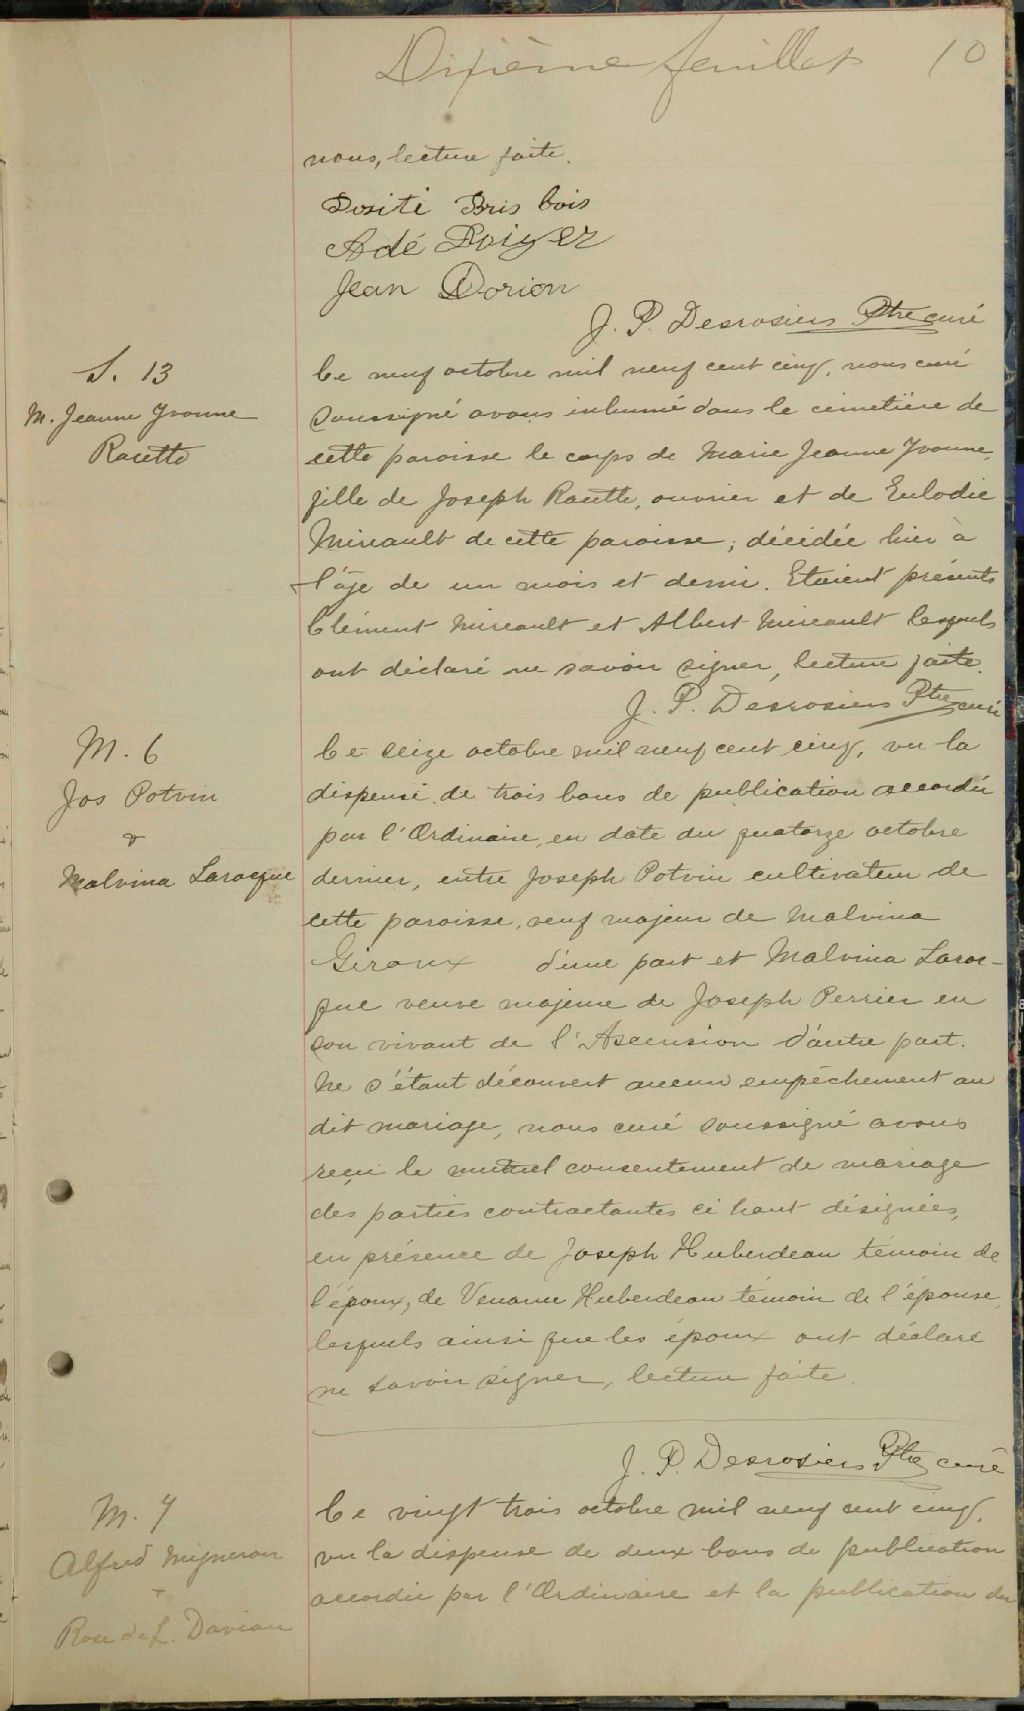 Dixième feuillet 10
nous, lecture faite.
Dosité Bris bois
Adé
Jean Dorion
J. P. Desrosiers Ptre curé
S. 13
M. Jeanne Yvonne
Racette
Ce neuf octobre mil neuf cent cinq, nous curé
soussigné avons inhumé dans le cimetière de
cette paroisse le corps de Marie Jeanne Yvonne,
fille de Joseph Racette, ouvrier et de Eulodie
Mireault de cette paroisse ; décédée hier à
l'âge de un mois et demi. Etaient présents
Clément Mireault et Albert Mireault lesquels
ont déclaré ne savoir signer, lecture faite.
J. P. Desrosiers Ptre curé
M. 6
Jos Potvin
&
Malvina Larocque
Ce seize octobre mil neuf cent cinq, vu la
dispense de trois bans de publication accordée
par l'Ordinaire, en date du quatorze octobre
dernier, entre Joseph Potvin cultivateur de
cette paroisse, veuf majeur de Malvina
Giroux d'une part et Malvina Laroc-
que veuve majeure de Joseph Perrier en
son vivant de l'Ascension d'autre part.
Ne s'étant découvert aucun empêchement au
dit mariage, nous curé soussigné avons
reçu le mutuel consentement de mariage
des parties contractantes ci haut désignées,
en présence de Joseph Huberdeau témoin de
l'époux, de Venance Huberdeau témoin de l'épouse,
lesquels ainsi que les époux ont déclaré
ne savoir signer, lecture faite.
J. P. Desrosiers Ptre curé
M. 7
Alfred Migneron
+
Rose de L. Davian
Ce vingt trois octobre mil neuf cent cinq,
vu la dispense de deux bans de publication
accordée par l'Ordinaire et la publication du